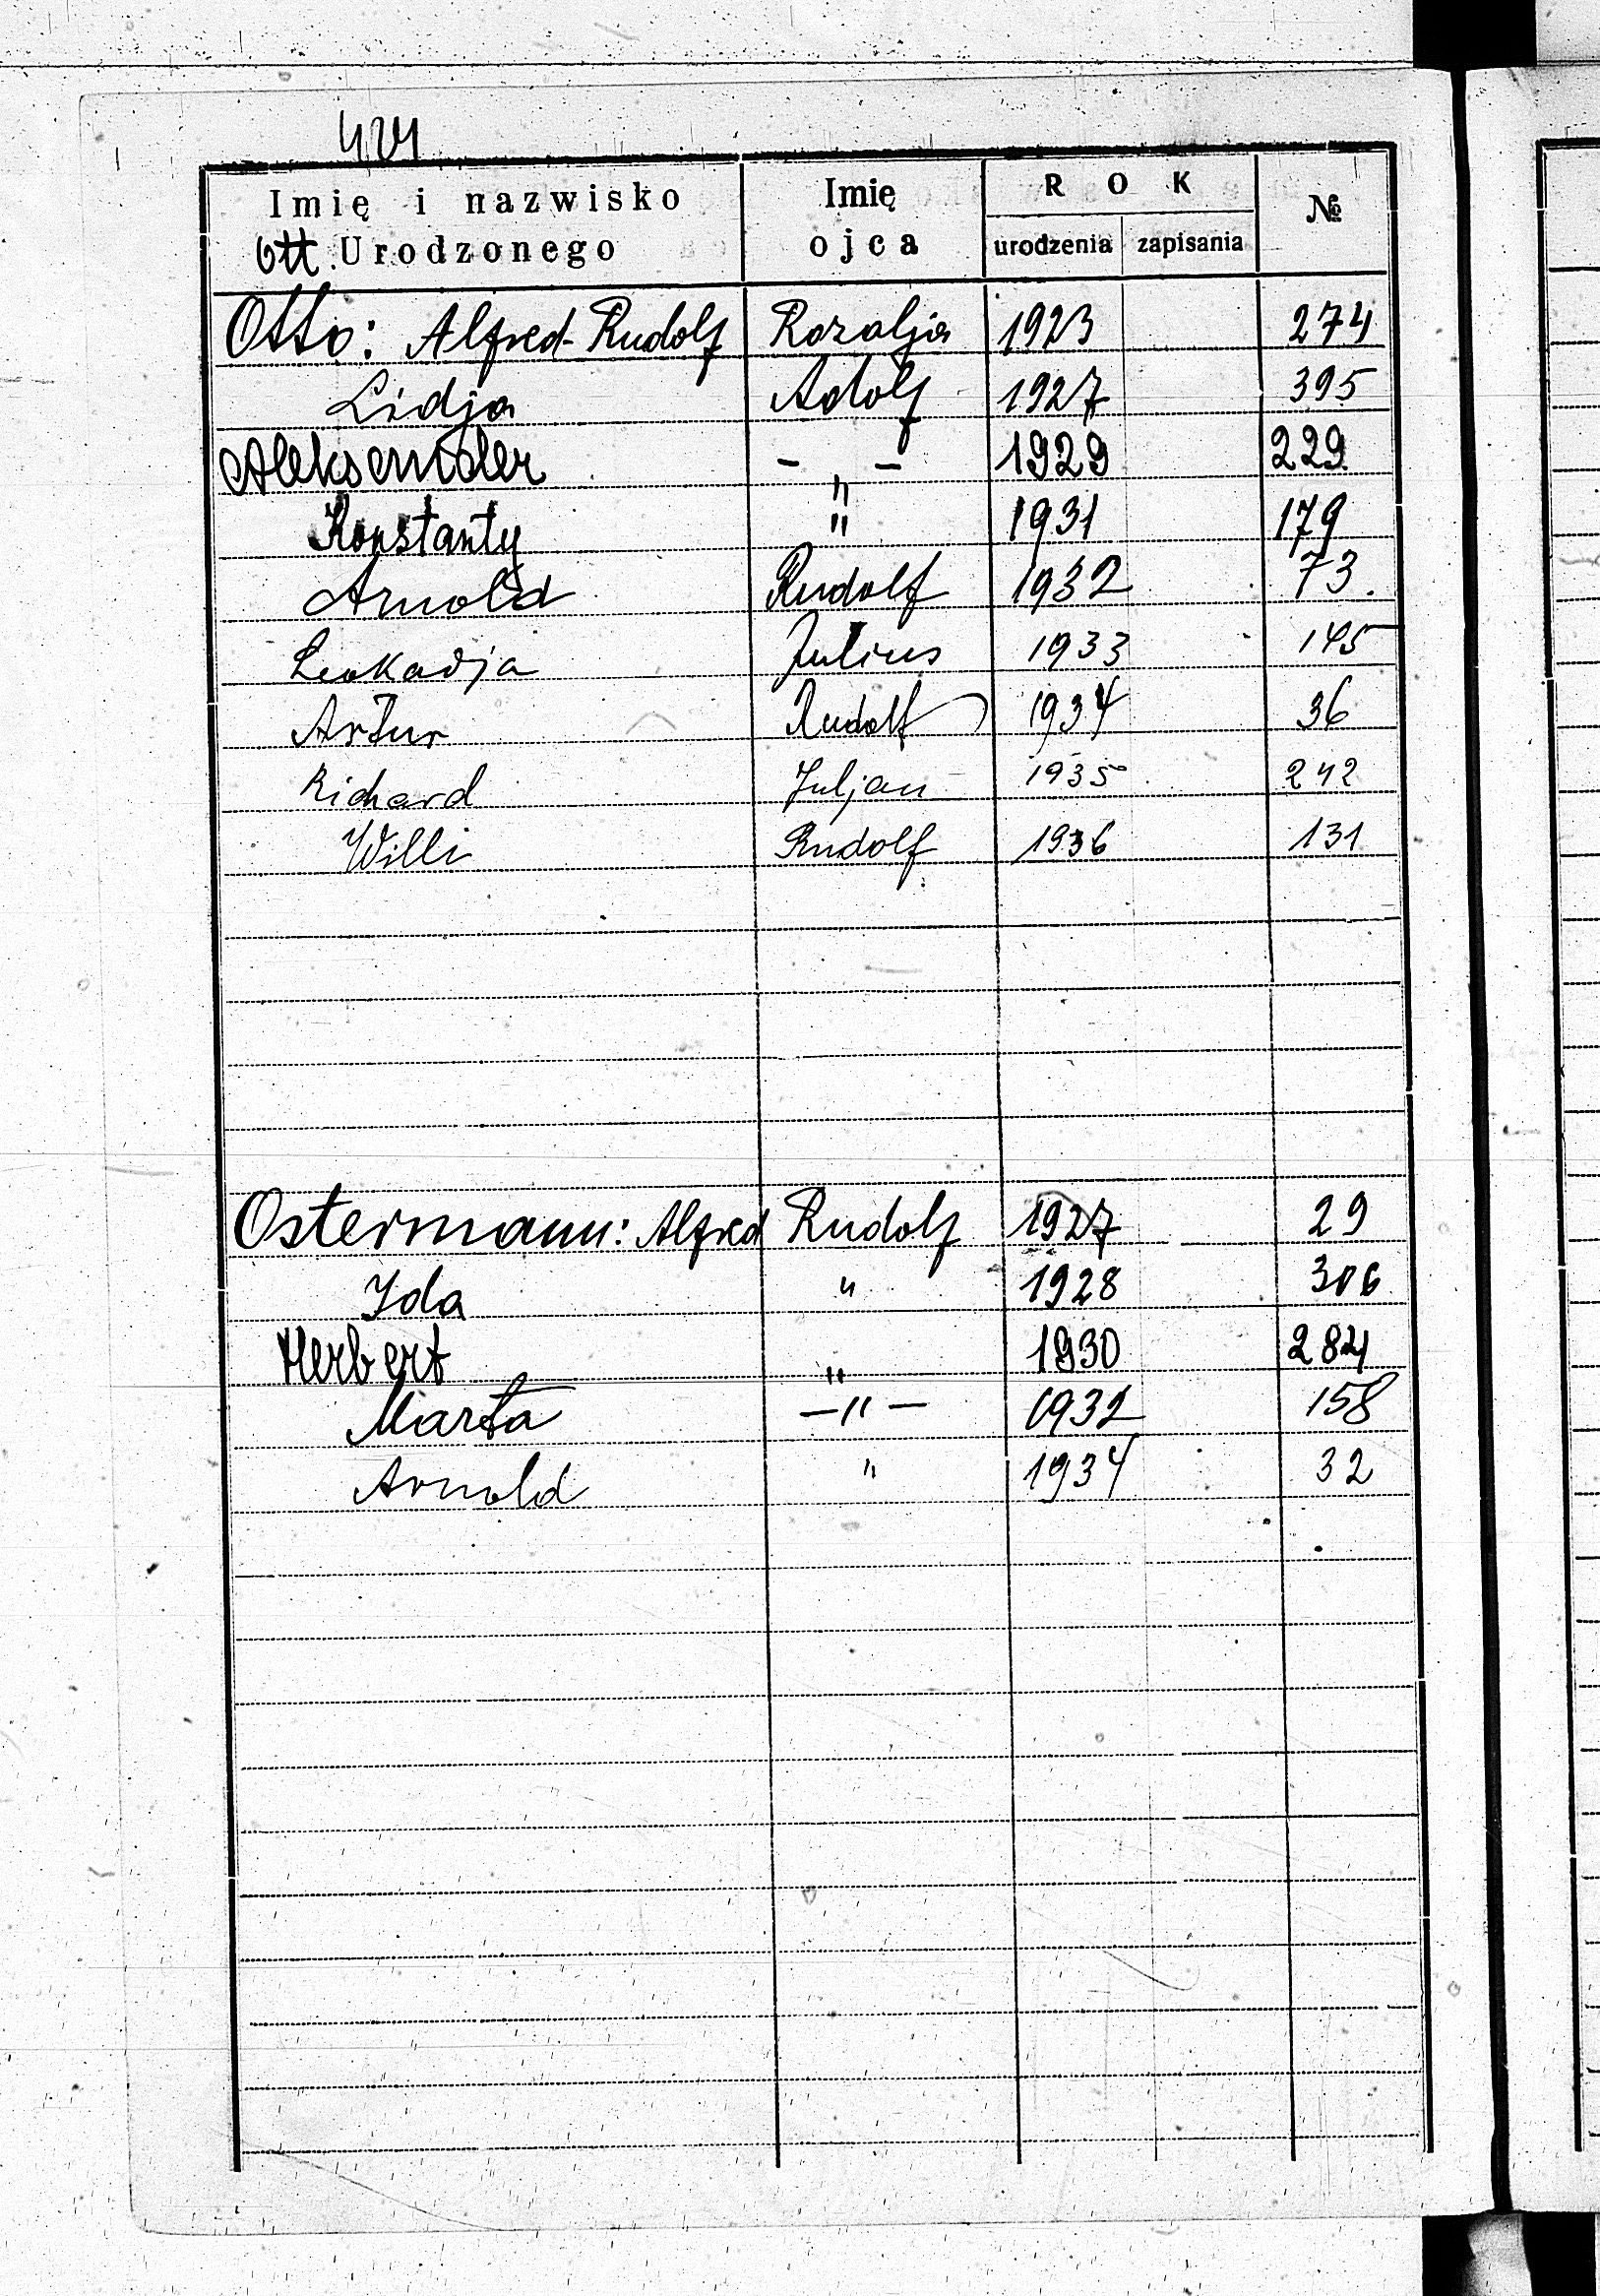 424
Imię i nazwisko Imię ROK №
Ott. Urodzonego ojca urodzenia zapisania
Otto: Alfred-Rudolf Rozalja 1923 274
Lidja Adolf 1927 395
Aleksander - " - 1929 229
Konstanty " 1931 179
Arnold Rudolf 1932 73.
Leokadja Julius 1933 145
Artur Rudolf 1934 36
Richard Juljan 1935 242
Willi Rudolf 1936 131
Ostermann: Alfred Rudolf 1927 29
Ida " 1928 306
Herbert " 1930 284
Marta -"- 1932 158
Arnold " 1934 32